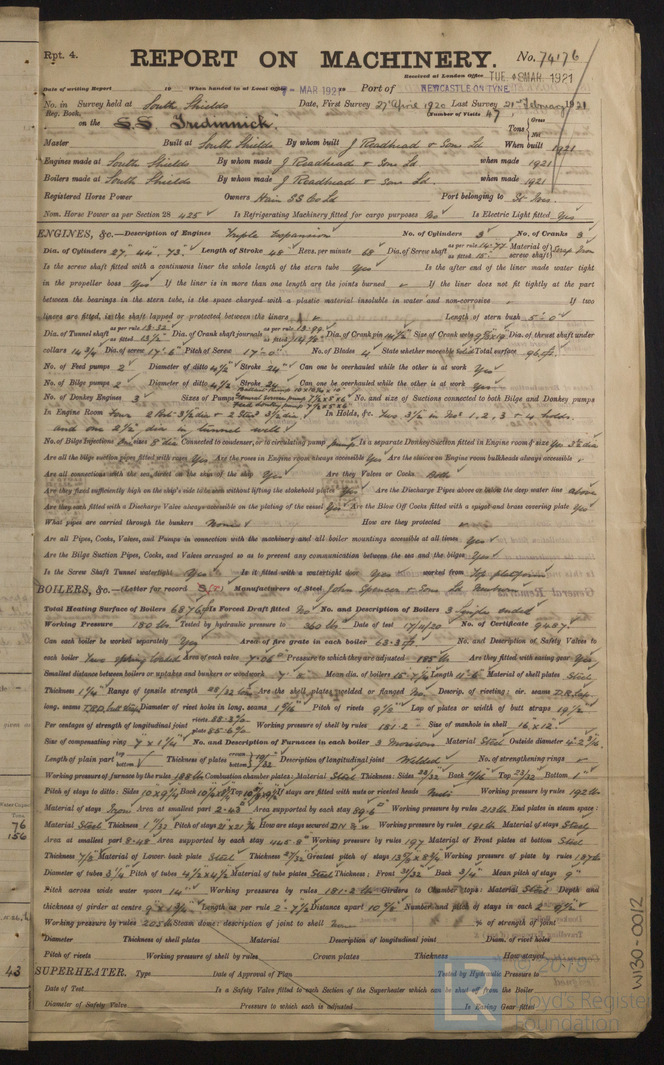 Rpt. 4.
REPORT ON MACHINERY.
No. 74176
Received at London Office TUE. 8 MAR. 1921
Date of writing Report 19 When handed in at Local Office 7 - MAR 1921 Port of NEWCASTLE-ON-TYNE
No. in Survey held at South Shields Date, First Survey 27 April 1920 Last Survey 21st February 1921
Reg. Book. (Number of Visits 47
on the S.S. Tredinnick. Tons { Gross Net
Master Built at South Shields By whom built J. Readhead & Sons Ld When built 1921
Engines made at South Shields By whom made J Readhead & Sons Ld when made 1921
Boilers made at South Shields By whom made J Readhead & Sons Ld. when made 1921
Registered Horse Power Owners Hain SS Co Ld Port belonging to St Ives.
Nom. Horse Power as per Section 28 425 Is Refrigerating Machinery fitted for cargo purposes No Is Electric Light fitted Yes
ENGINES, &c.—Description of Engines Triple Expansion No. of Cylinders 3 No. of Cranks 3
Dia. of Cylinders 27" 44" 73" Length of Stroke 48" Revs. per minute 68 Dia. of Screw shaft as per rule 14.77 as fitted 15" Material of screw shaft Scrap Iron
Is the screw shaft fitted with a continuous liner the whole length of the stern tube Yes Is the after end of the liner made water tight
in the propeller boss Yes If the liner is in more than one length are the joints burned If the liner does not fit tightly at the part
between the bearings in the stern tube, is the space charged with a plastic material insoluble in water and non-corrosive If two
liners are fitted, is the shaft lapped or protected between the liners Length of stern bush 5'-0"
Dia. of Tunnel shaft as per rule 13.32 as fitted 13 1/2 Dia. of Crank shaft journals as per rule 13.99 as fitted 14 1/4 Dia. of Crank pin 14 1/2 Size of Crank webs Dia. of thrust shaft under
collars 14 3/4 Dia. of screw 17'-6" Pitch of Screw 17'-0" No. of Blades 4 State whether moveable Solid Total surface 96
No. of Feed pumps 2 Diameter of ditto 4 1/2 Stroke 24" Can one be overhauled while the other is at work Yes
No. of Bilge pumps 2 Diameter of ditto 4 1/2 Stroke 24 Can one be overhauled while the other is at work Yes
No. of Donkey Engines 3 Sizes of Pumps No. and size of Suctions connected to both Bilge and Donkey pumps
In Engine Room Four 2 Port 3 1/2 dia & 2 Star 3 1/2 dia In Holds, &c. Two 3 1/2 in Nos 1, 2, 3 & 4 holds.
and one 2 1/2 dia in tunnel well
No. of Bilge Injections One sizes Connected to condenser, or to circulating pump pump Is a separate Donkey Suction fitted in Engine room & size Yes 3 1/2 dia
Are all the bilge suction pipes fitted with roses Yes Are the roses in Engine room always accessible Yes Are the sluices on Engine room bulkheads always accessible
Are all connections with the sea direct on the skin of the ship Yes Are they Valves or Cocks Both
Are they fixed sufficiently high on the ship's side to be seen without lifting the stokehold plates Yes Are the Discharge Pipes above or below the deep water line above
Are they each fitted with a Discharge Valve always accessible on the plating of the vessel Yes Are the Blow Off Cocks fitted with a spigot and brass covering plate Yes
What pipes are carried through the bunkers None How are they protected
Are all Pipes, Cocks, Valves, and Pumps in connection with the machinery and all boiler mountings accessible at all times Yes
Are the Bilge Suction Pipes, Cocks, and Valves arranged so as to prevent any communication between the sea and the bilges Yes
Is the Screw Shaft Tunnel watertight Yes Is it fitted with a watertight door Yes worked from Top platform
BOILERS, &c.—(Letter for record S) Manufacturers of Steel John Spencer & Sons Ld Newburn
Total Heating Surface of Boilers 6876 Is Forced Draft fitted No No. and Description of Boilers 3 Single ended
Working Pressure 180 lbs Tested by hydraulic pressure to 360 lbs Date of test 17/11/20 No. of Certificate 9487
Can each boiler be worked separately Yes Area of fire grate in each boiler 63.3 No. and Description of Safety Valves to
each boiler Two Spring loaded Area of each valve 7.06 Pressure to which they are adjusted 185 lbs Are they fitted with easing gear Yes
Smallest distance between boilers or uptakes and bunkers or woodwork Mean dia. of boilers Length 11'-6" Material of shell plates Steel
Thickness Range of tensile strength 28/32 tons Are the shell plates welded or flanged No Descrip. of riveting: cir. seams D.R. lap
long. seams Diameter of rivet holes in long. seams Pitch of rivets 9 1/2 Lap of plates or width of butt straps 19 1/2
Per centages of strength of longitudinal joint rivets 88.3% plate 85.6% Working pressure of shell by rules 181.2 Size of manhole in shell 16" x 12"
Size of compensating ring No. and Description of Furnaces in each boiler 3 Morison Material Steel Outside diameter
Length of plain part top bottom Thickness of plates crown bottom Description of longitudinal joint Welded No. of strengthening rings
Working pressure of furnace by the rules 188 lbs Combustion chamber plates: Material Steel Thickness: Sides 23/32 Back 11/16 Top 23/32 Bottom 1"
Pitch of stays to ditto: Sides Back Top If stays are fitted with nuts or riveted heads Nuts Working pressure by rules 192 lbs
Material of stays Iron Area at smallest part 2.43 Area supported by each stay 89.6 Working pressure by rules 213 lbs End plates in steam space:
Material Steel Thickness 1 7/32 Pitch of stays How are stays secured D N & W Working pressure by rules 190 lbs Material of stays Steel
Area at smallest part 8.48 Area supported by each stay 445.5 Working pressure by rules 197 Material of Front plates at bottom Steel
Thickness 7/8 Material of Lower back plate Steel Thickness Greatest pitch of stays Working pressure of plate by rules
Diameter of tubes 3 1/4 Pitch of tubes 4 1/2 x 4 1/2 Material of tube plates Steel Thickness: Front 31/32 Back 3/4 Mean pitch of stays 9"
Pitch across wide water spaces 14" Working pressures by rules 181.2 lbs Girders to Chamber tops: Material Steel Depth and
thickness of girder at centre Length as per rule 2'-7 1/2 Distance apart Number and pitch of stays in each
Working pressure by rules 205 lbs Steam dome: description of joint to shell % of strength of joint
Diameter Thickness of shell plates Material Description of longitudinal joint Diam. of rivet holes
Pitch of rivets Working pressure of shell by rules Crown plates Thickness How stayed
SUPERHEATER. Type Date of Approval of Plan Tested by Hydraulic Pressure to
Date of Test Is a Safety Valve fitted to each Section of the Superheater which can be shut off from the Boiler
Diameter of Safety Valve Pressure to which each is adjusted Is Easing Gear fitted
76
156
43
W1130-0012
2019
Lloyd's Register
Foundation